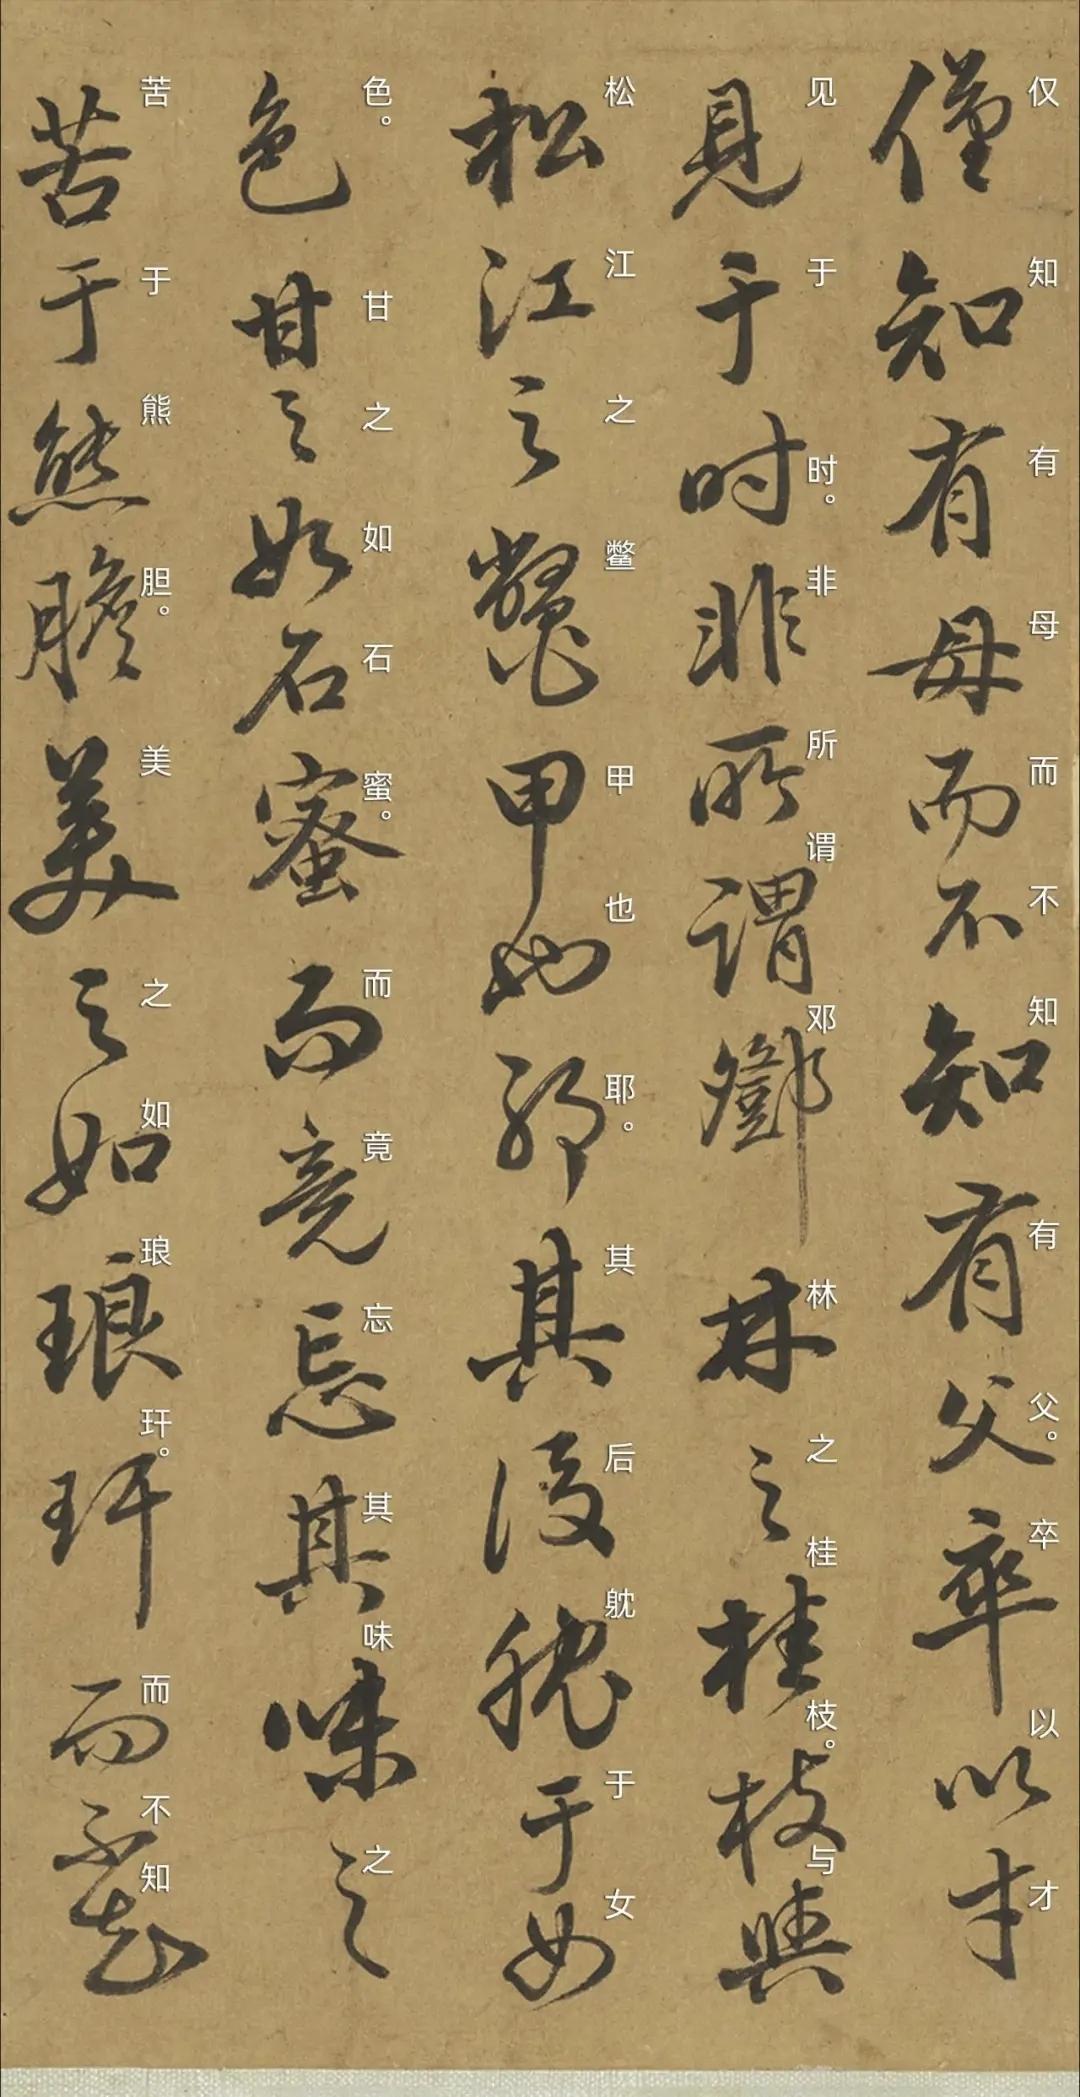 仅知有母而不知有父。卒以才
僅知有母而不知有父卒以才
见于时。非所谓邓林之桂枝。与
見于时非所謂鄧林之桂枝與
松江之鳖甲也耶。其后躭于女
松江之鼈甲也耶其後躭于女
色。甘之如石蜜。而竟忘其味之
色甘之如石蜜而竟忘其味之
苦于熊胆。美之如琅玕。而不知
苦于熊膽美之如琅玕而不知